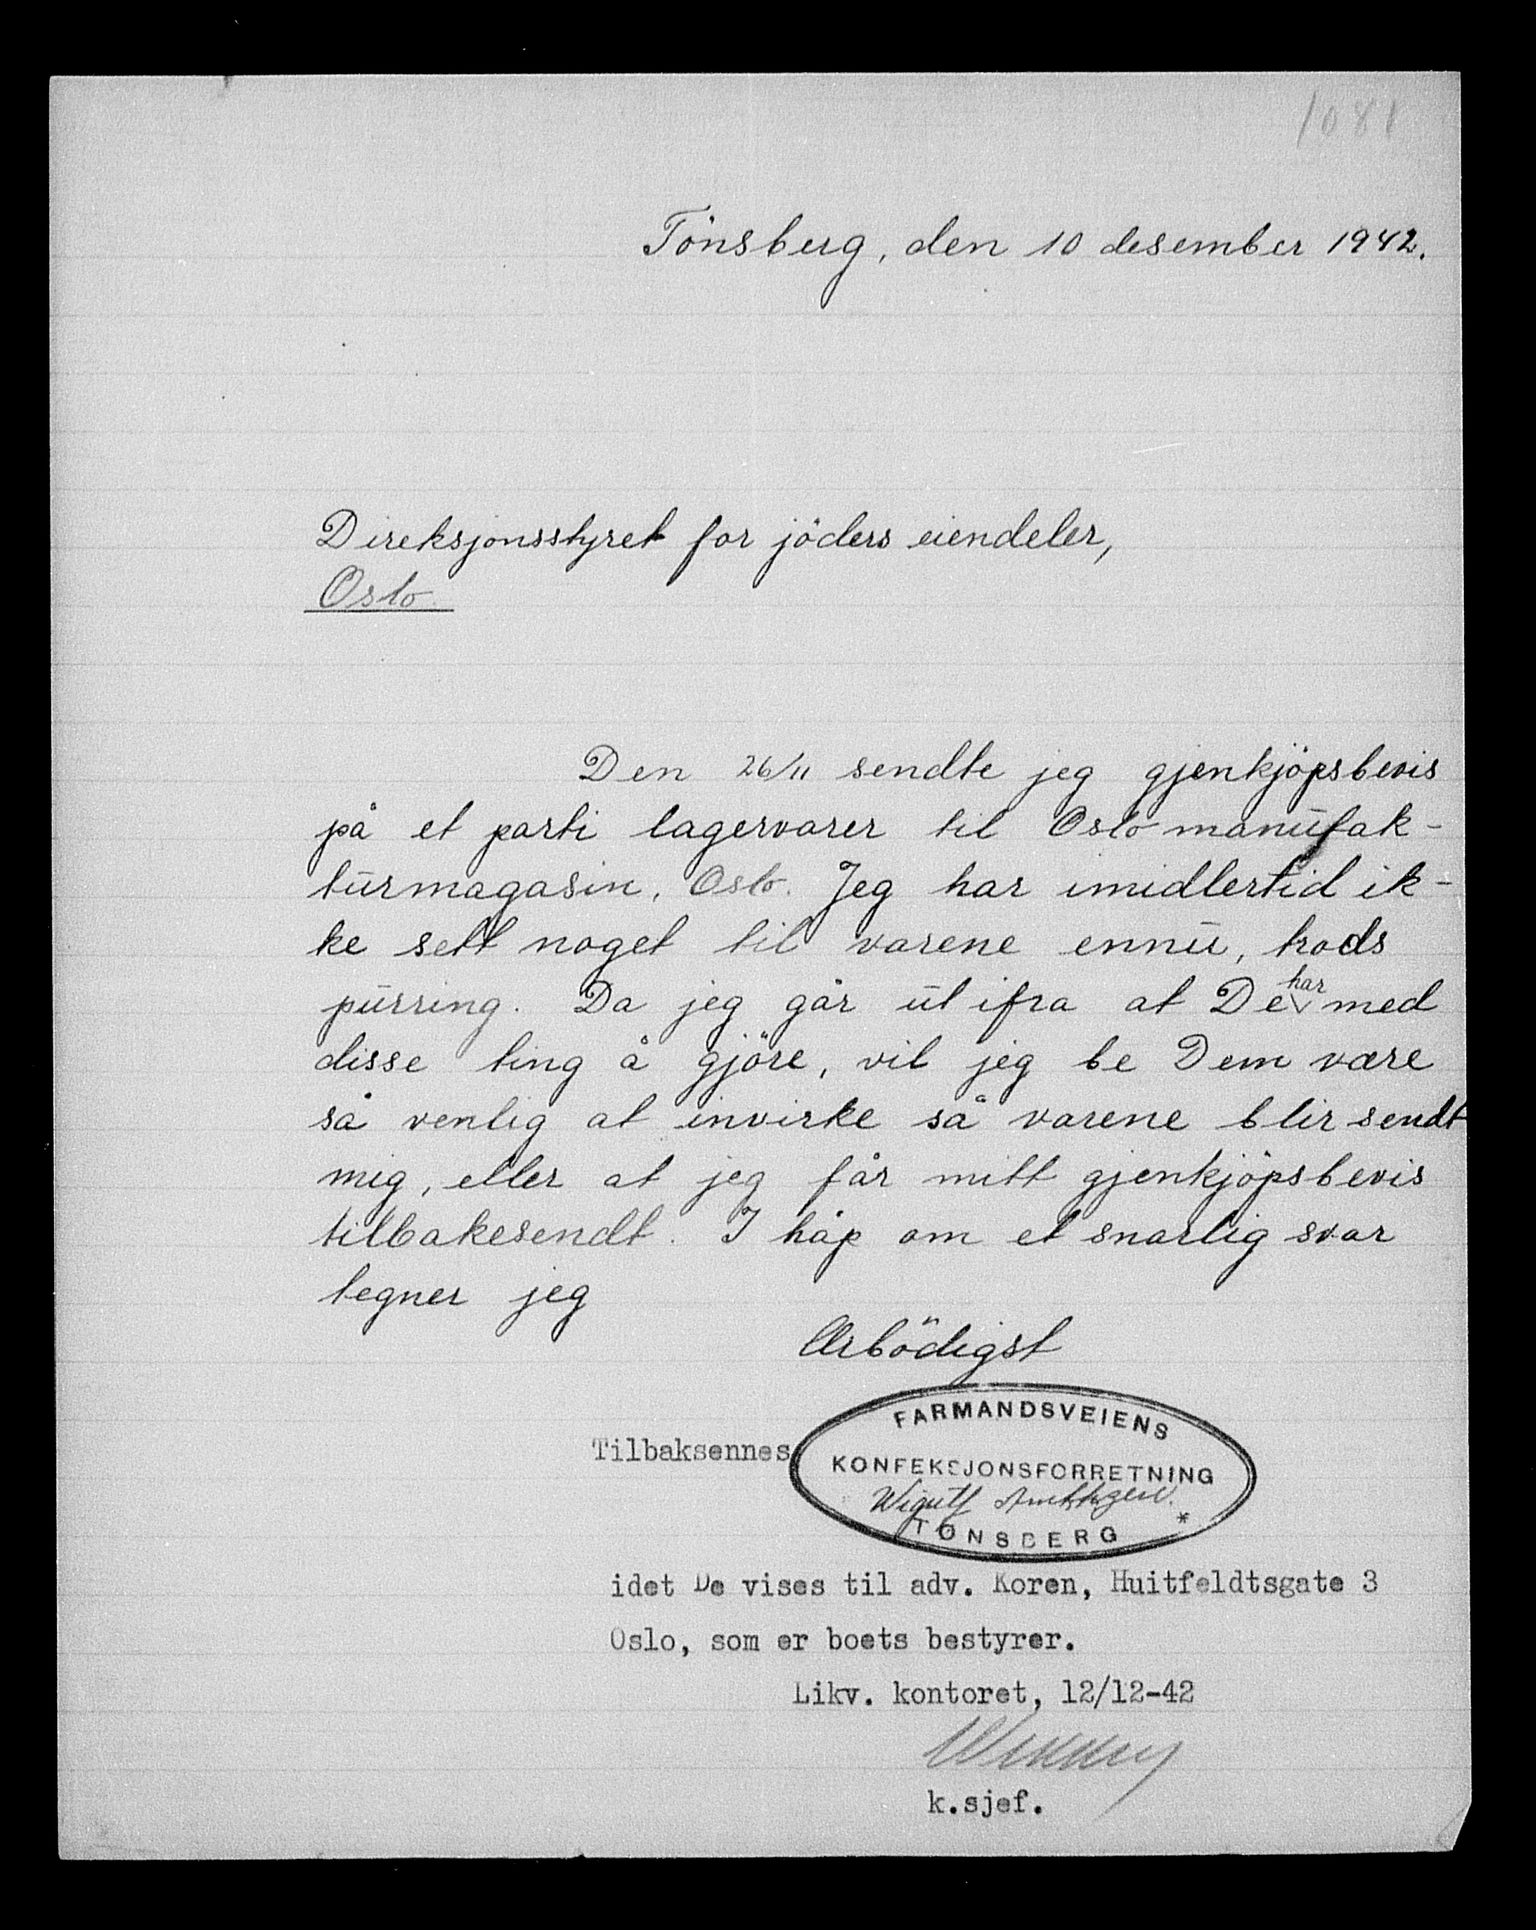 1081
Tönsberg, den 10 desember 1942.
Direksjonsstyret for jöders eiendeler,
Oslo
Den 26/11 sendte jeg gjenkjöpsbevis
på et parti lagervarer til Oslo manufak-
turmagasin, Oslo. Jeg har imidlertid ik-
ke sett noget til varene ennu, trods
purring. Da jeg går ut ifra at De har med
disse ting å gjöre, vil jeg be Dem være
så venlig at invirke så varene blir sendt
mig, eller at jeg får mitt gjenkjöpsbevis
tilbakesendt. I håp om et snarlig svar
tegner jeg
Ærbödigst
FARMANDSVEIENS
Tilbaksennes
KONFEKSJONSFORRETNING
TØNSBERG *
idet De vises til adv. Koren, Huitfeldtsgate 3
Oslo, som er boets bestyrer.
Likv. kontoret, 12/12-42
k.sjef.